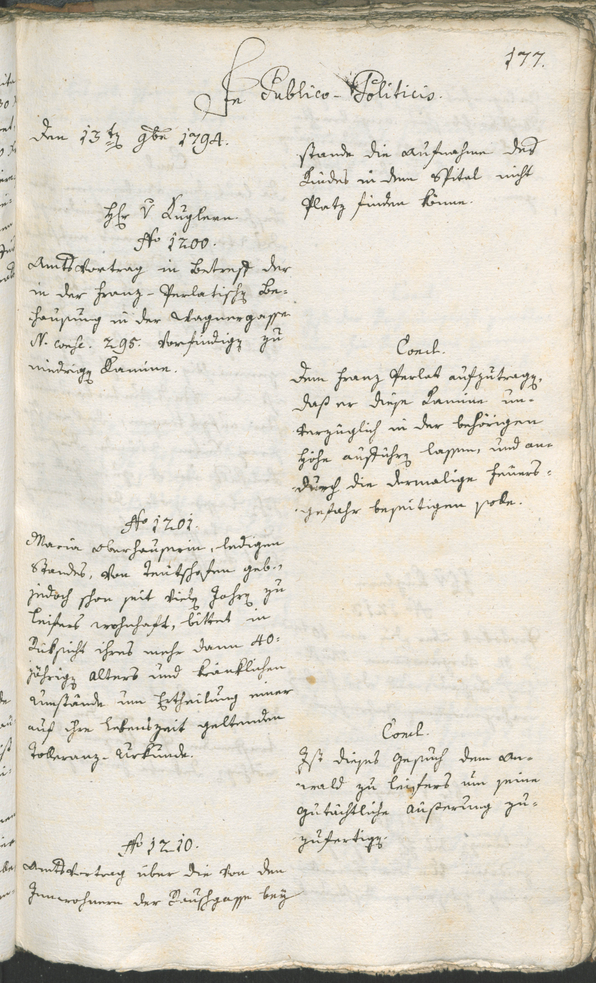 177.
In Publico-Politicis.
Den 13tn 9be 1794.
Hr. v Kuglern
No 1200.
Amtsvortrag in Betreff der
in der Franz-Perlatischn Be-
hausung in der Wagnergasse
N. consc. 295. vorfindign zu
niedrign Kamine.
No 1201.
Maria Oberhauserin, ledigen
Standes, von Teutschofen geb.,
jedoch schon seit vieln Jahrn zu
Leifers wohnhaft, bittet in
Rüksicht ihres mehr dann 40-
jährign Alters und kränklichen
Umstände um Ertheilung einer
auf ihre Lebenszeit geltenden
Toleranz-Urkunde.
No 1210.
Amtsvortrag über die von den
Innwohnern der Rauschgasse bey
stande die Aufnahme des
Kindes in dem Spital nicht
Platz finden könne.
Concl.
Dem Franz Perlat aufzutragn,
daß er diese Kamine un-
verzüglich in der behörigen
Höhe ausführn lassen, und an-
durch die dermalige Feuers-
gefahr beseitigen solle.
Concl.
Ist dieses Gesuch dem An-
wald zu Leifers um seine
gutächtliche Äußerung zu-
zufertign.